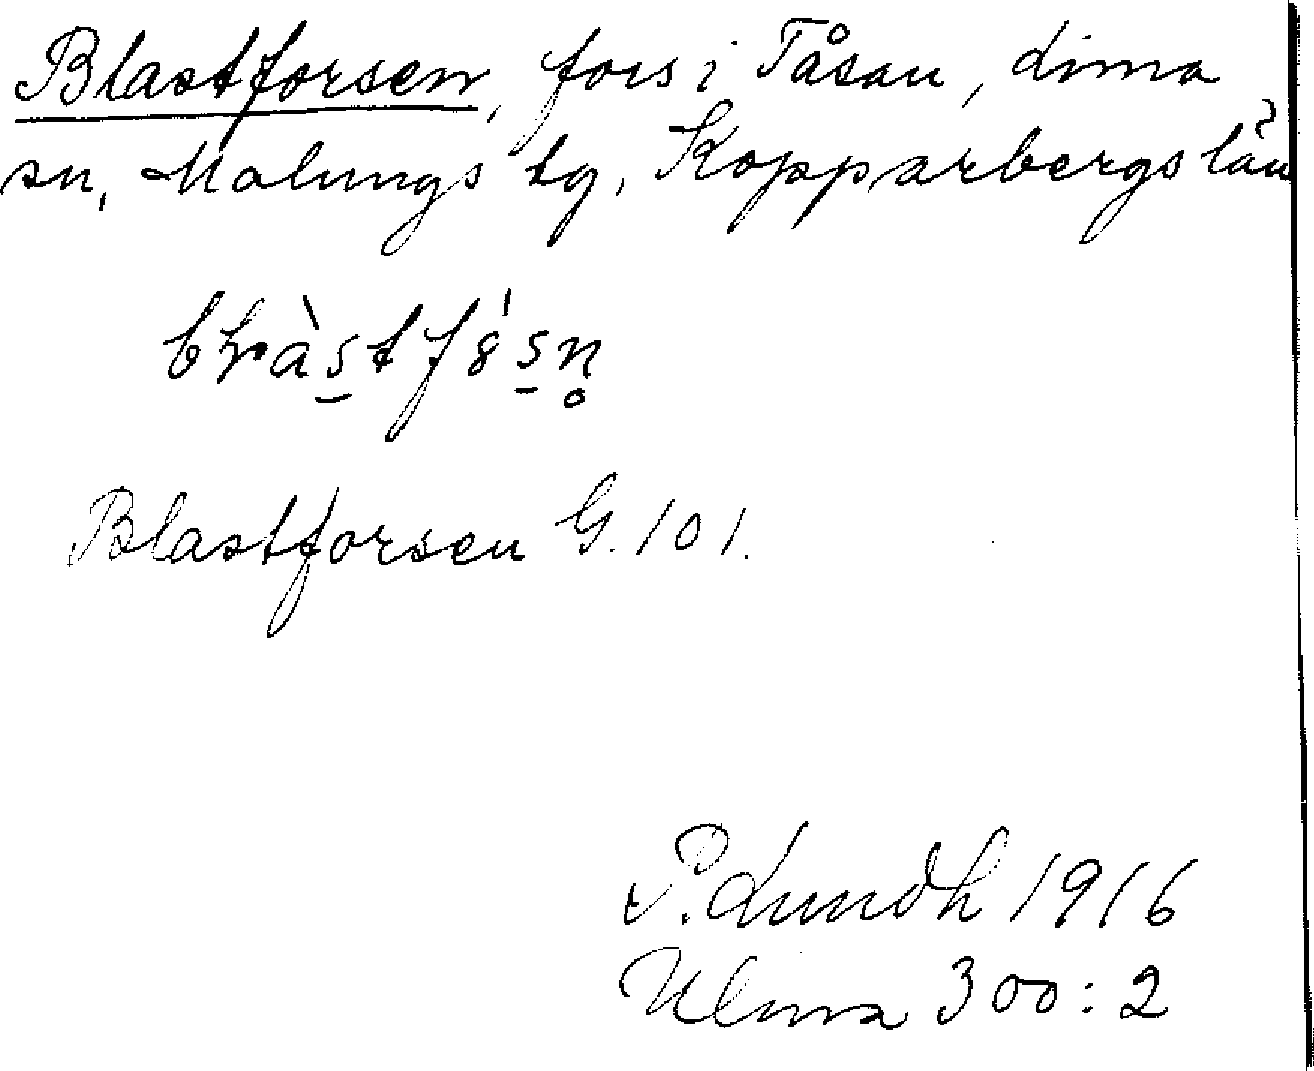 Blastforsen, fors i Tåsan, Lima
sn, Malungs tg, Kopparbergs län
Blastforsen G. 101.
P. Lundh 1916
Ulma 300:2